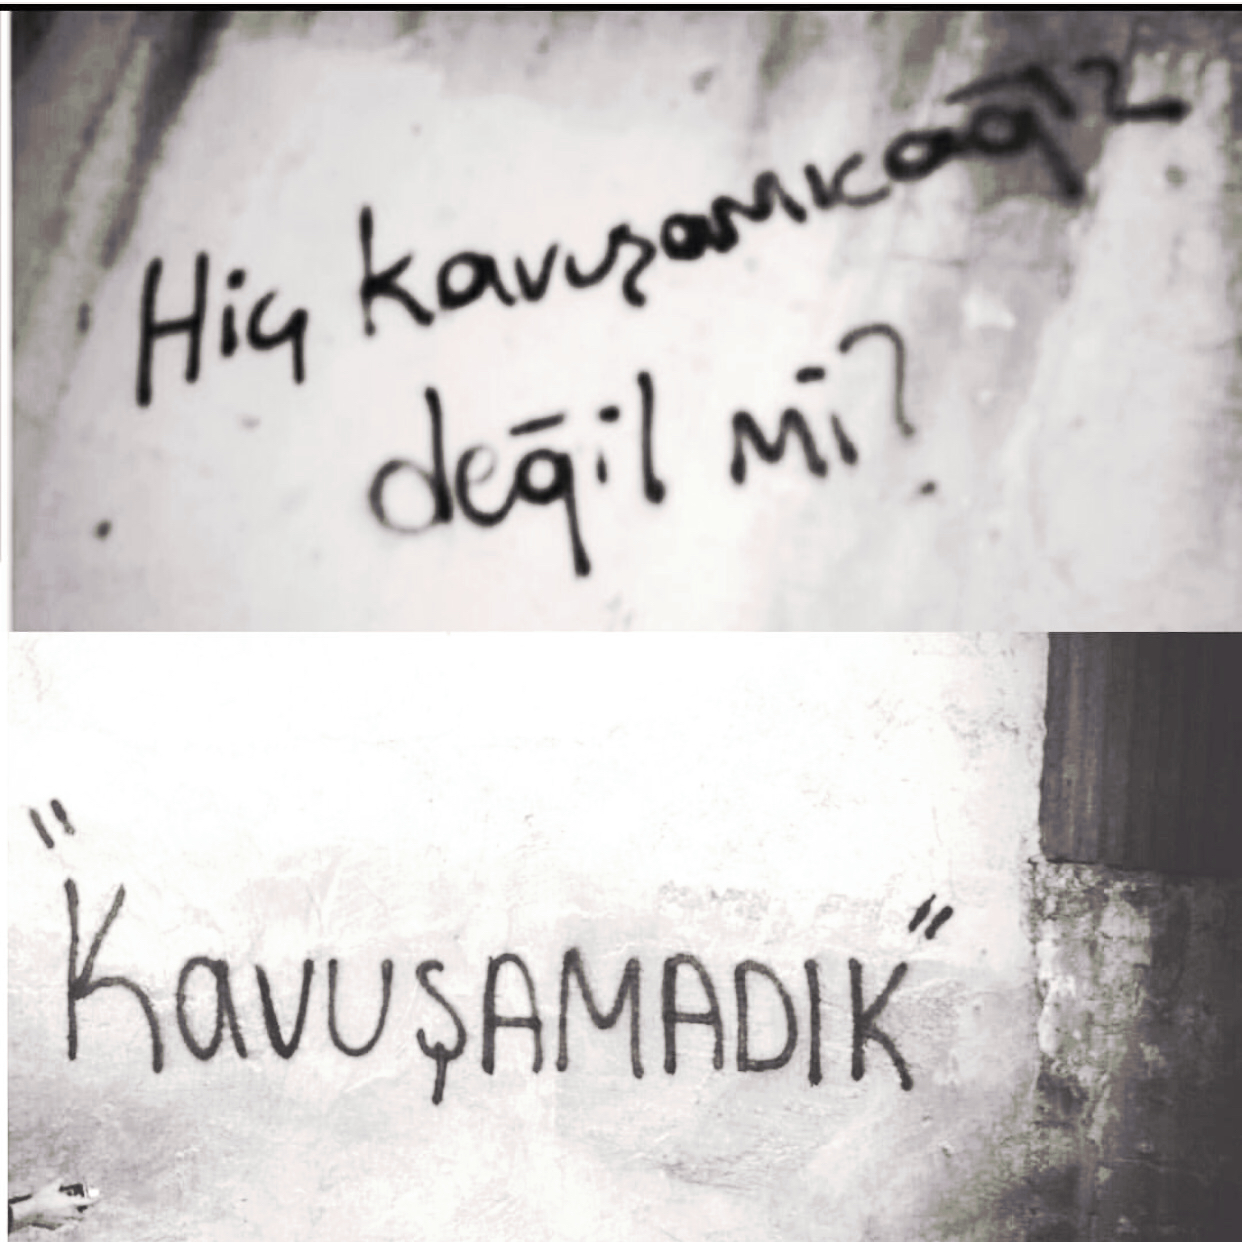 Hiç kavuşamıcağız
değil mi?
"KavuşAMADIK"